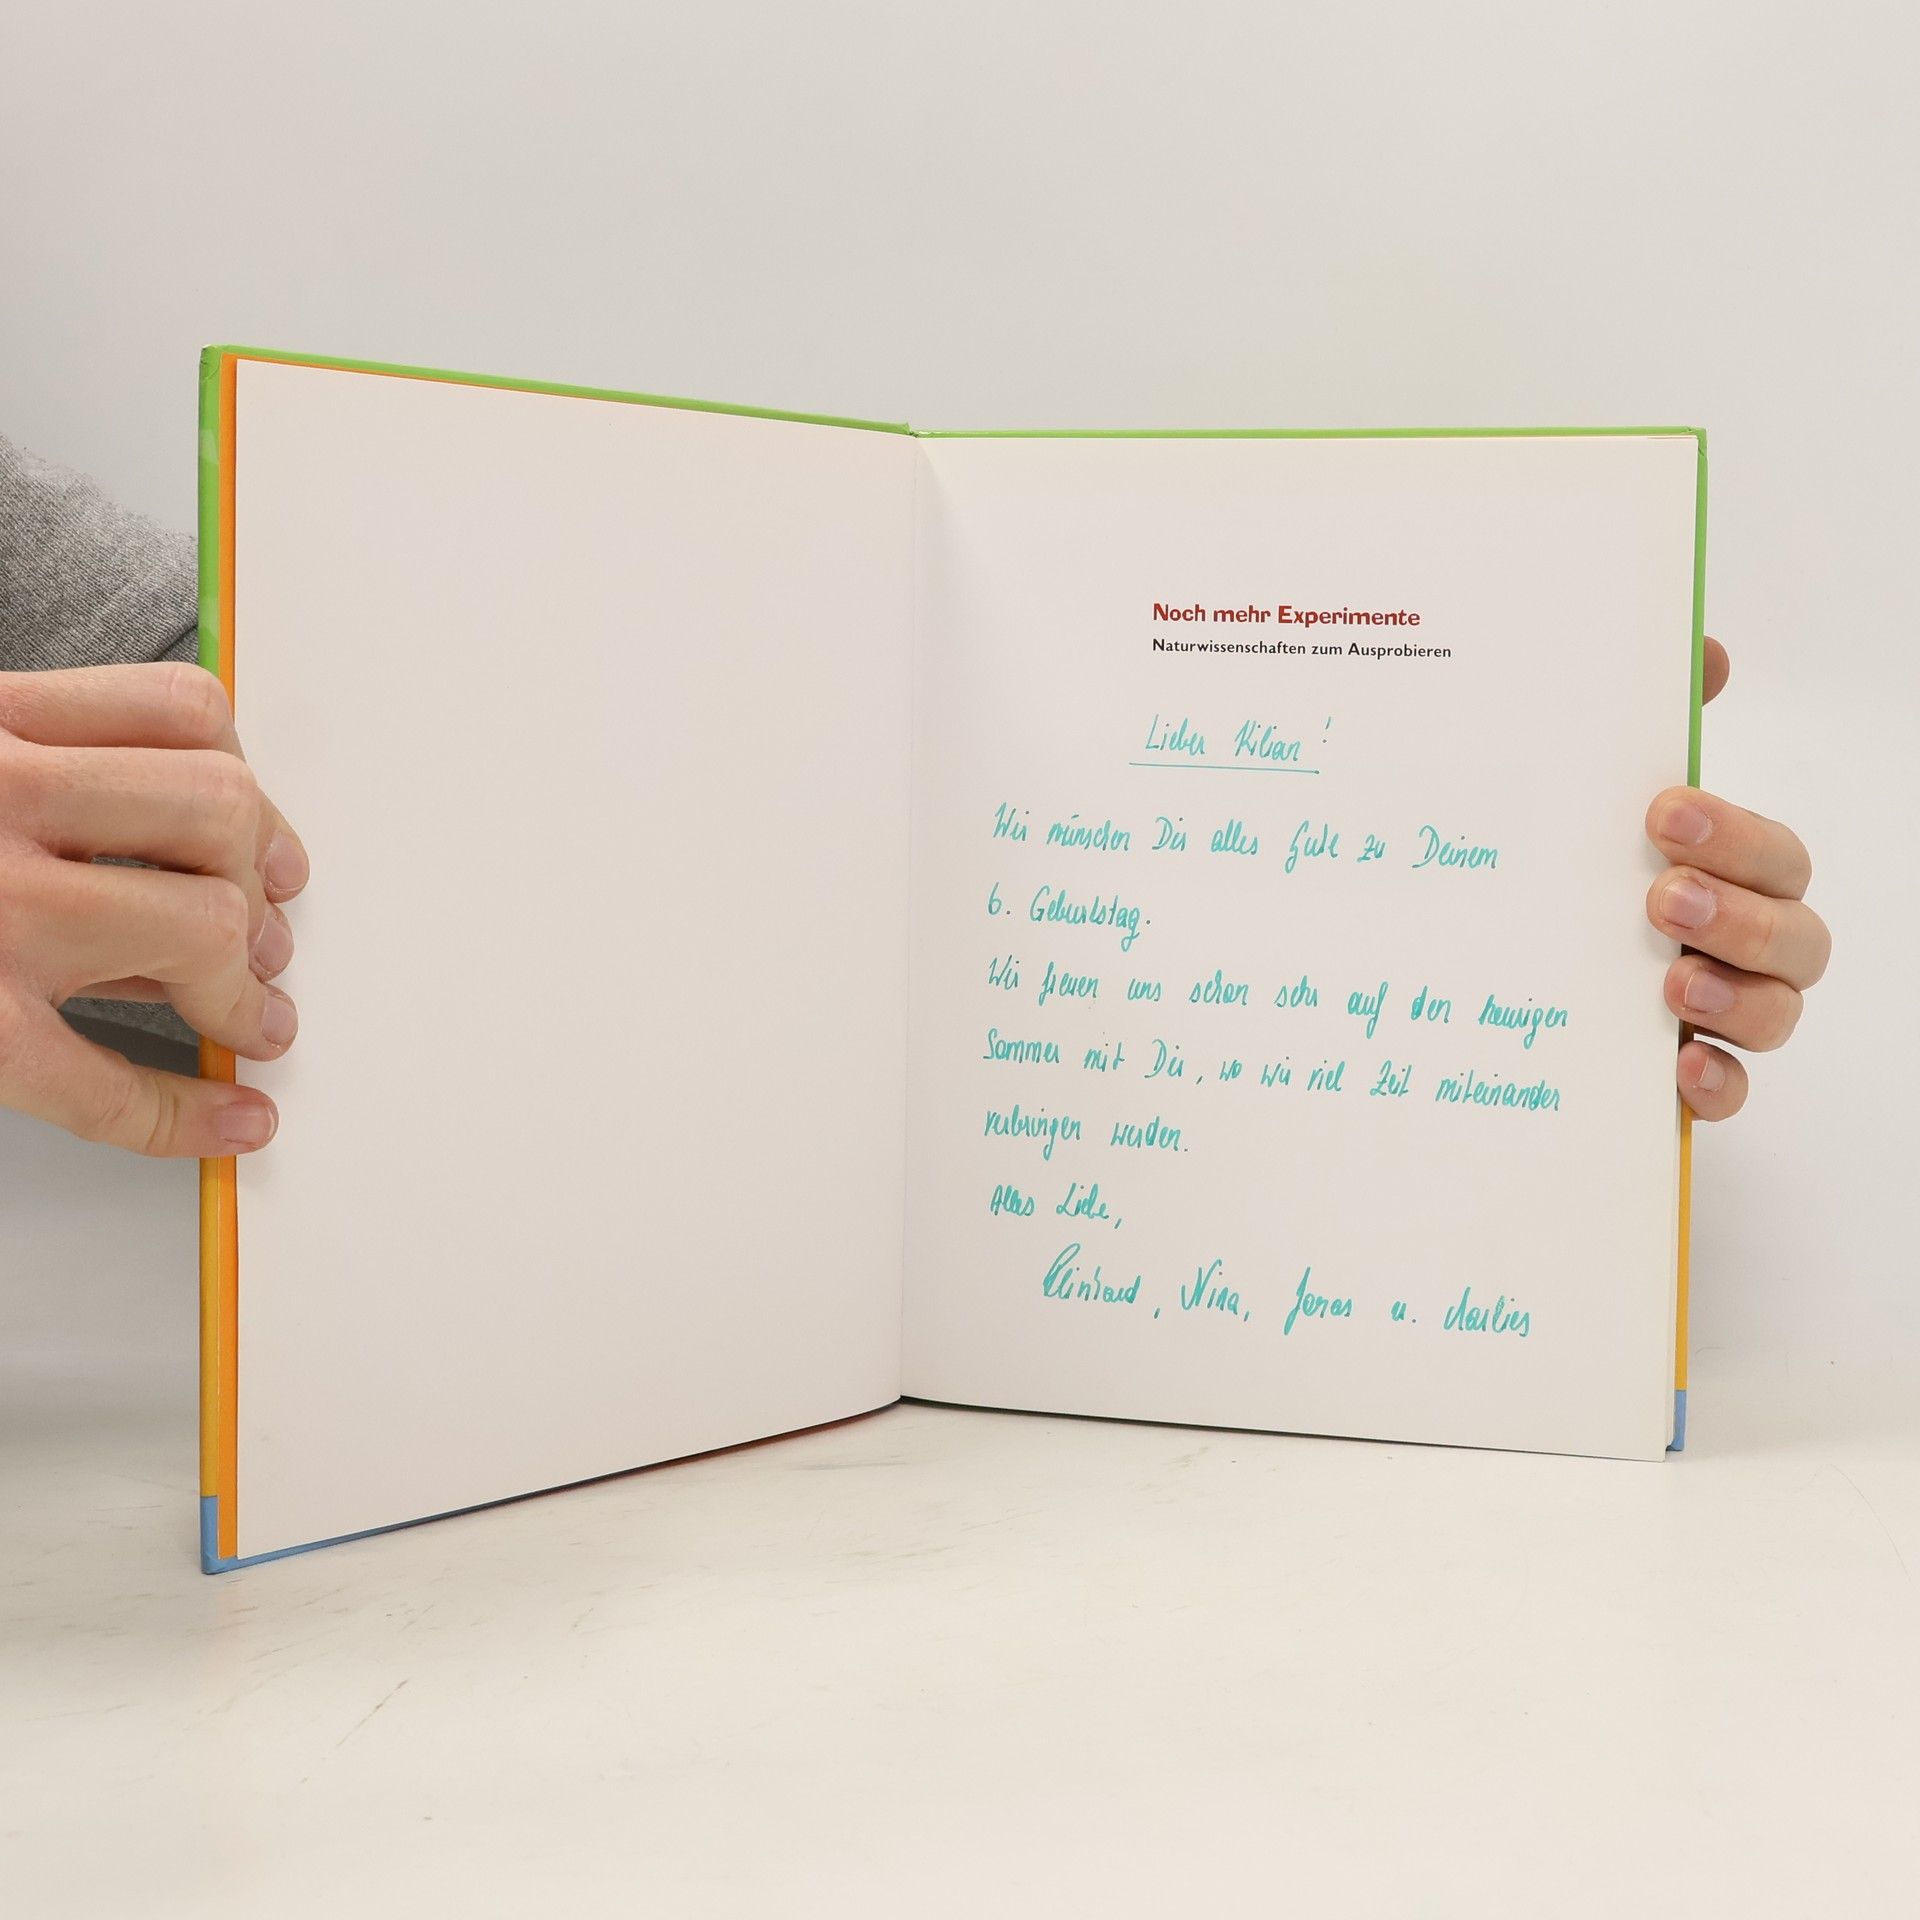 Noch mehr Experimente
Naturwissenschaften zum Ausprobieren
Lieber Kilian!
Wir wünschen Dir alles Gute zu Deinem
6. Geburtstag.
Wir freuen uns schon sehr auf den heurigen
Sommer mit Dir, wo wir viel Zeit miteinander
verbringen werden.
Alles Liebe,
Reinhard, Nina, Jonas u. Marlies